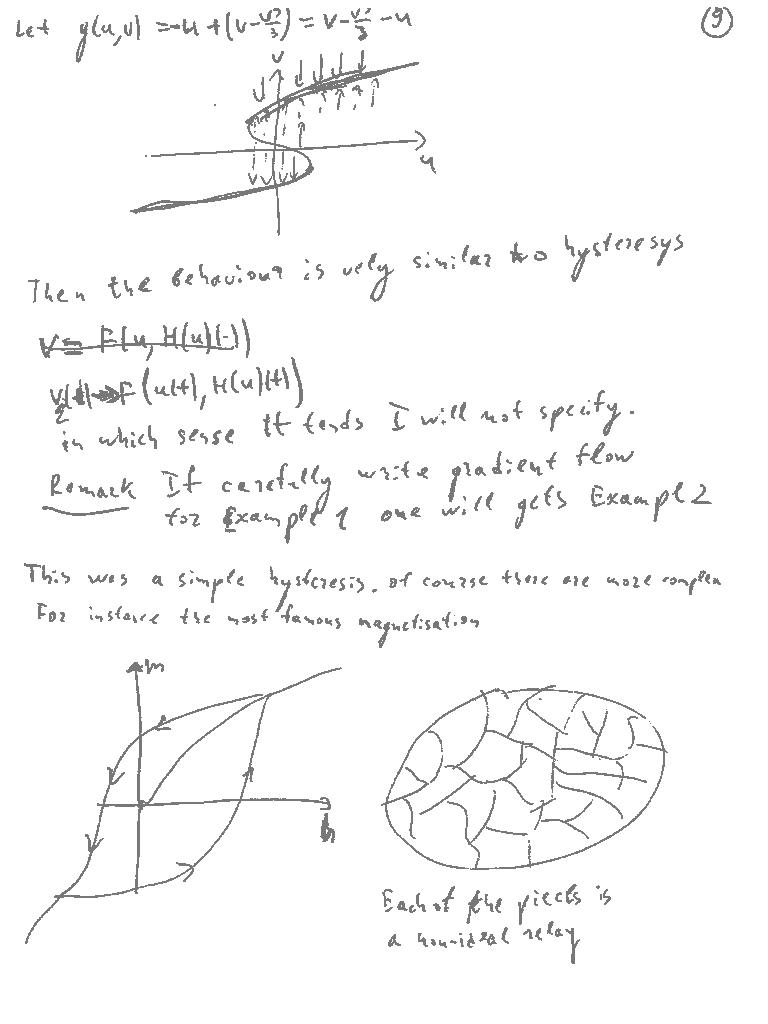 Let g(u,v) = -u + (v - v³/3) = v - v³/3 - u
9
v
u
Then the behaviour is very similar to hysteresys
V = F(u, H(u)(·))
F(u(t), H(u)(t))
in which sense it tends I will not specify.
Remark If carefully write gradient flow
for Example 1 one will gets Example 2
This was a simple hysteresis. Of course there are more complex
For instance the most famous magnetisation
m
h
Each of the pieces is
a non-ideal relay